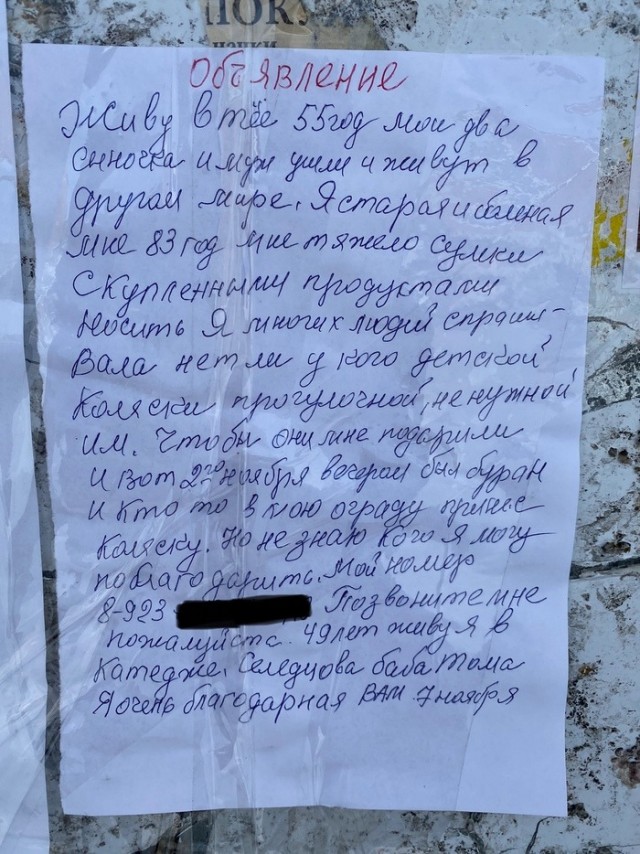 ПОКУ
Объявление
Живу в тče 55 год мои два
сыночка и муж ушли и живут в
другом мире. Я старая и больная
мне 83 год мне тяжело сумки
с купленными продуктами
носить Я многих людей спраши-
вала нет ли у кого детской
коляски прогулочной, не нужной
им. Чтобы они мне подарили
и вот 2го ноября вечером был буран
и кто то в мою ограду принес
коляску. Но не знаю кого я могу
поблагодарить. Мой номер
8-923 Позвоните мне
пожалуйста. 49 лет живу я в
катедже. Селедцова баба Тома
Я очень благодарная ВАМ 7 ноября